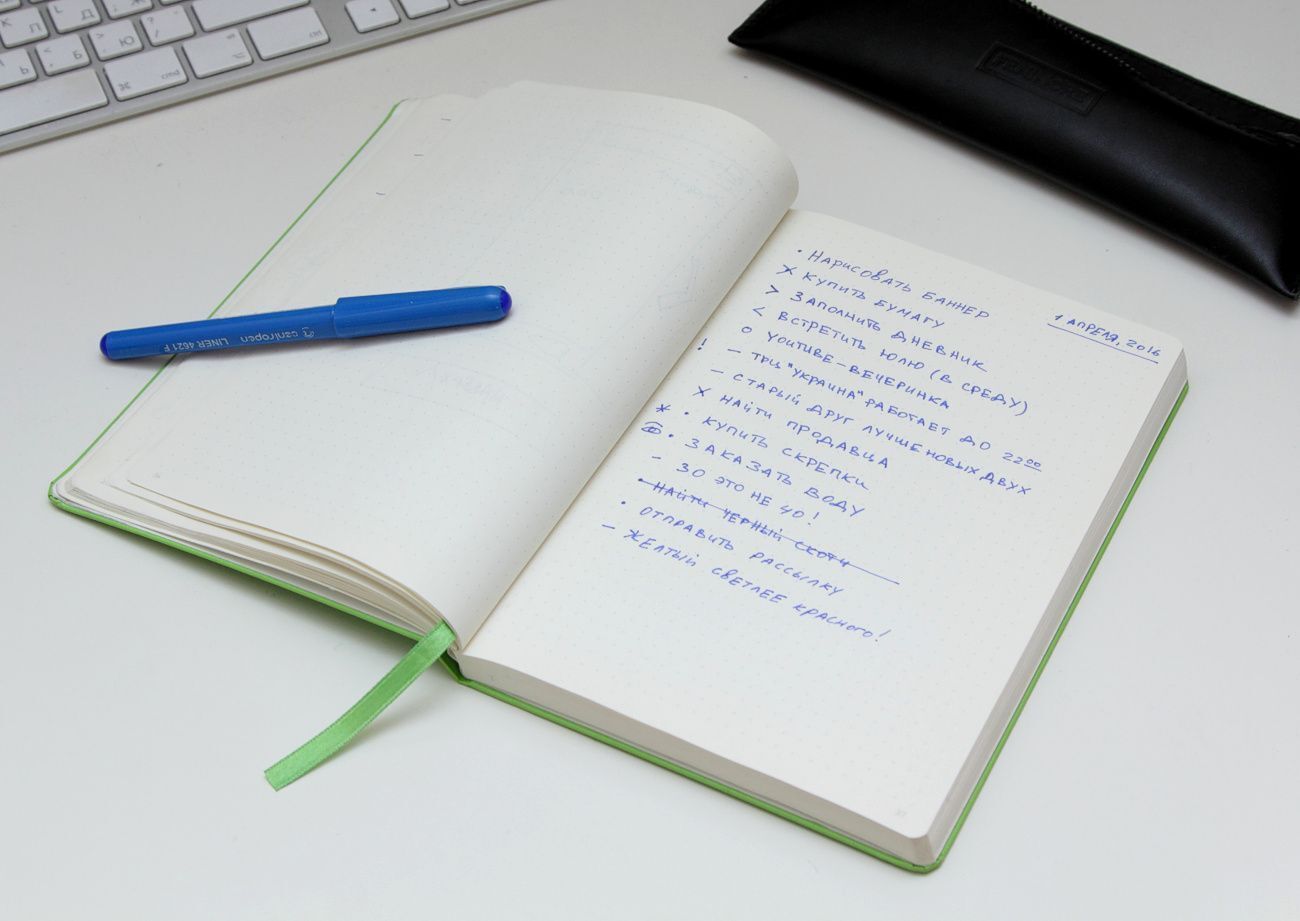 1 АПРЕЛЯ, 2016
• НАРИСОВАТЬ БАННЕР
× КУПИТЬ БУМАГУ
> ЗАПОЛНИТЬ ДНЕВНИК
< ВСТРЕТИТЬ ЮЛЮ (В СРЕДУ)
o YOUTUBE-ВЕЧЕРИНКА
! – ТРЦ "УКРАИНА" РАБОТАЕТ ДО 22⁰⁰
– СТАРЫЙ ДРУГ ЛУЧШЕ НОВЫХ ДВУХ
× НАЙТИ ПРОДАВЦА
* • КУПИТЬ СКРЕПКИ
• ЗАКАЗАТЬ ВОДУ
– 30 ЭТО НЕ 40!
• НАЙТИ ЧЕРНЫЙ СКОТЧ
• ОТПРАВИТЬ РАССЫЛКУ
– ЖЕЛТЫЙ СВЕТЛЕЕ КРАСНОГО!
centropen LINER 4621 F
cmd